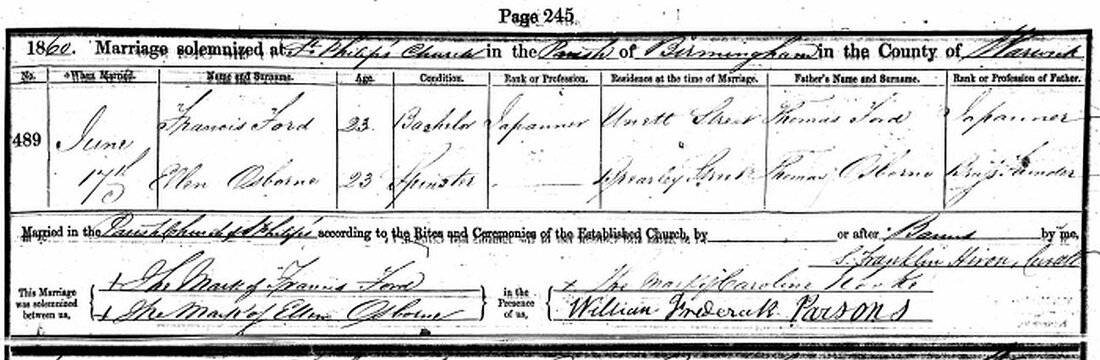 Page 245
1860. Marriage solemnized at St Philip's Church in the Parish of Birmingham in the County of Warwick
No. When Married. Name and Surname. Age. Condition. Rank or Profession. Residence at the time of Marriage. Father's Name and Surname. Rank or Profession of Father.
489 June 17th Francis Ford 23 Bachelor Japanner Unett Street Thomas Ford Japanner
Ellen Osborne 23 Spinster Street Thomas Osborne Brass Founder
Married in the Parish Church of St Philips according to the Rites and Ceremonies of the Established Church, by or after Banns by me,
S. Franklin Hiron, Curate
This Marriage was solemnized between us, x The Mark of Francis Ford in the Presence of us, x The mark of Caroline
x The Mark of Ellen Osborne William Frederick Parsons